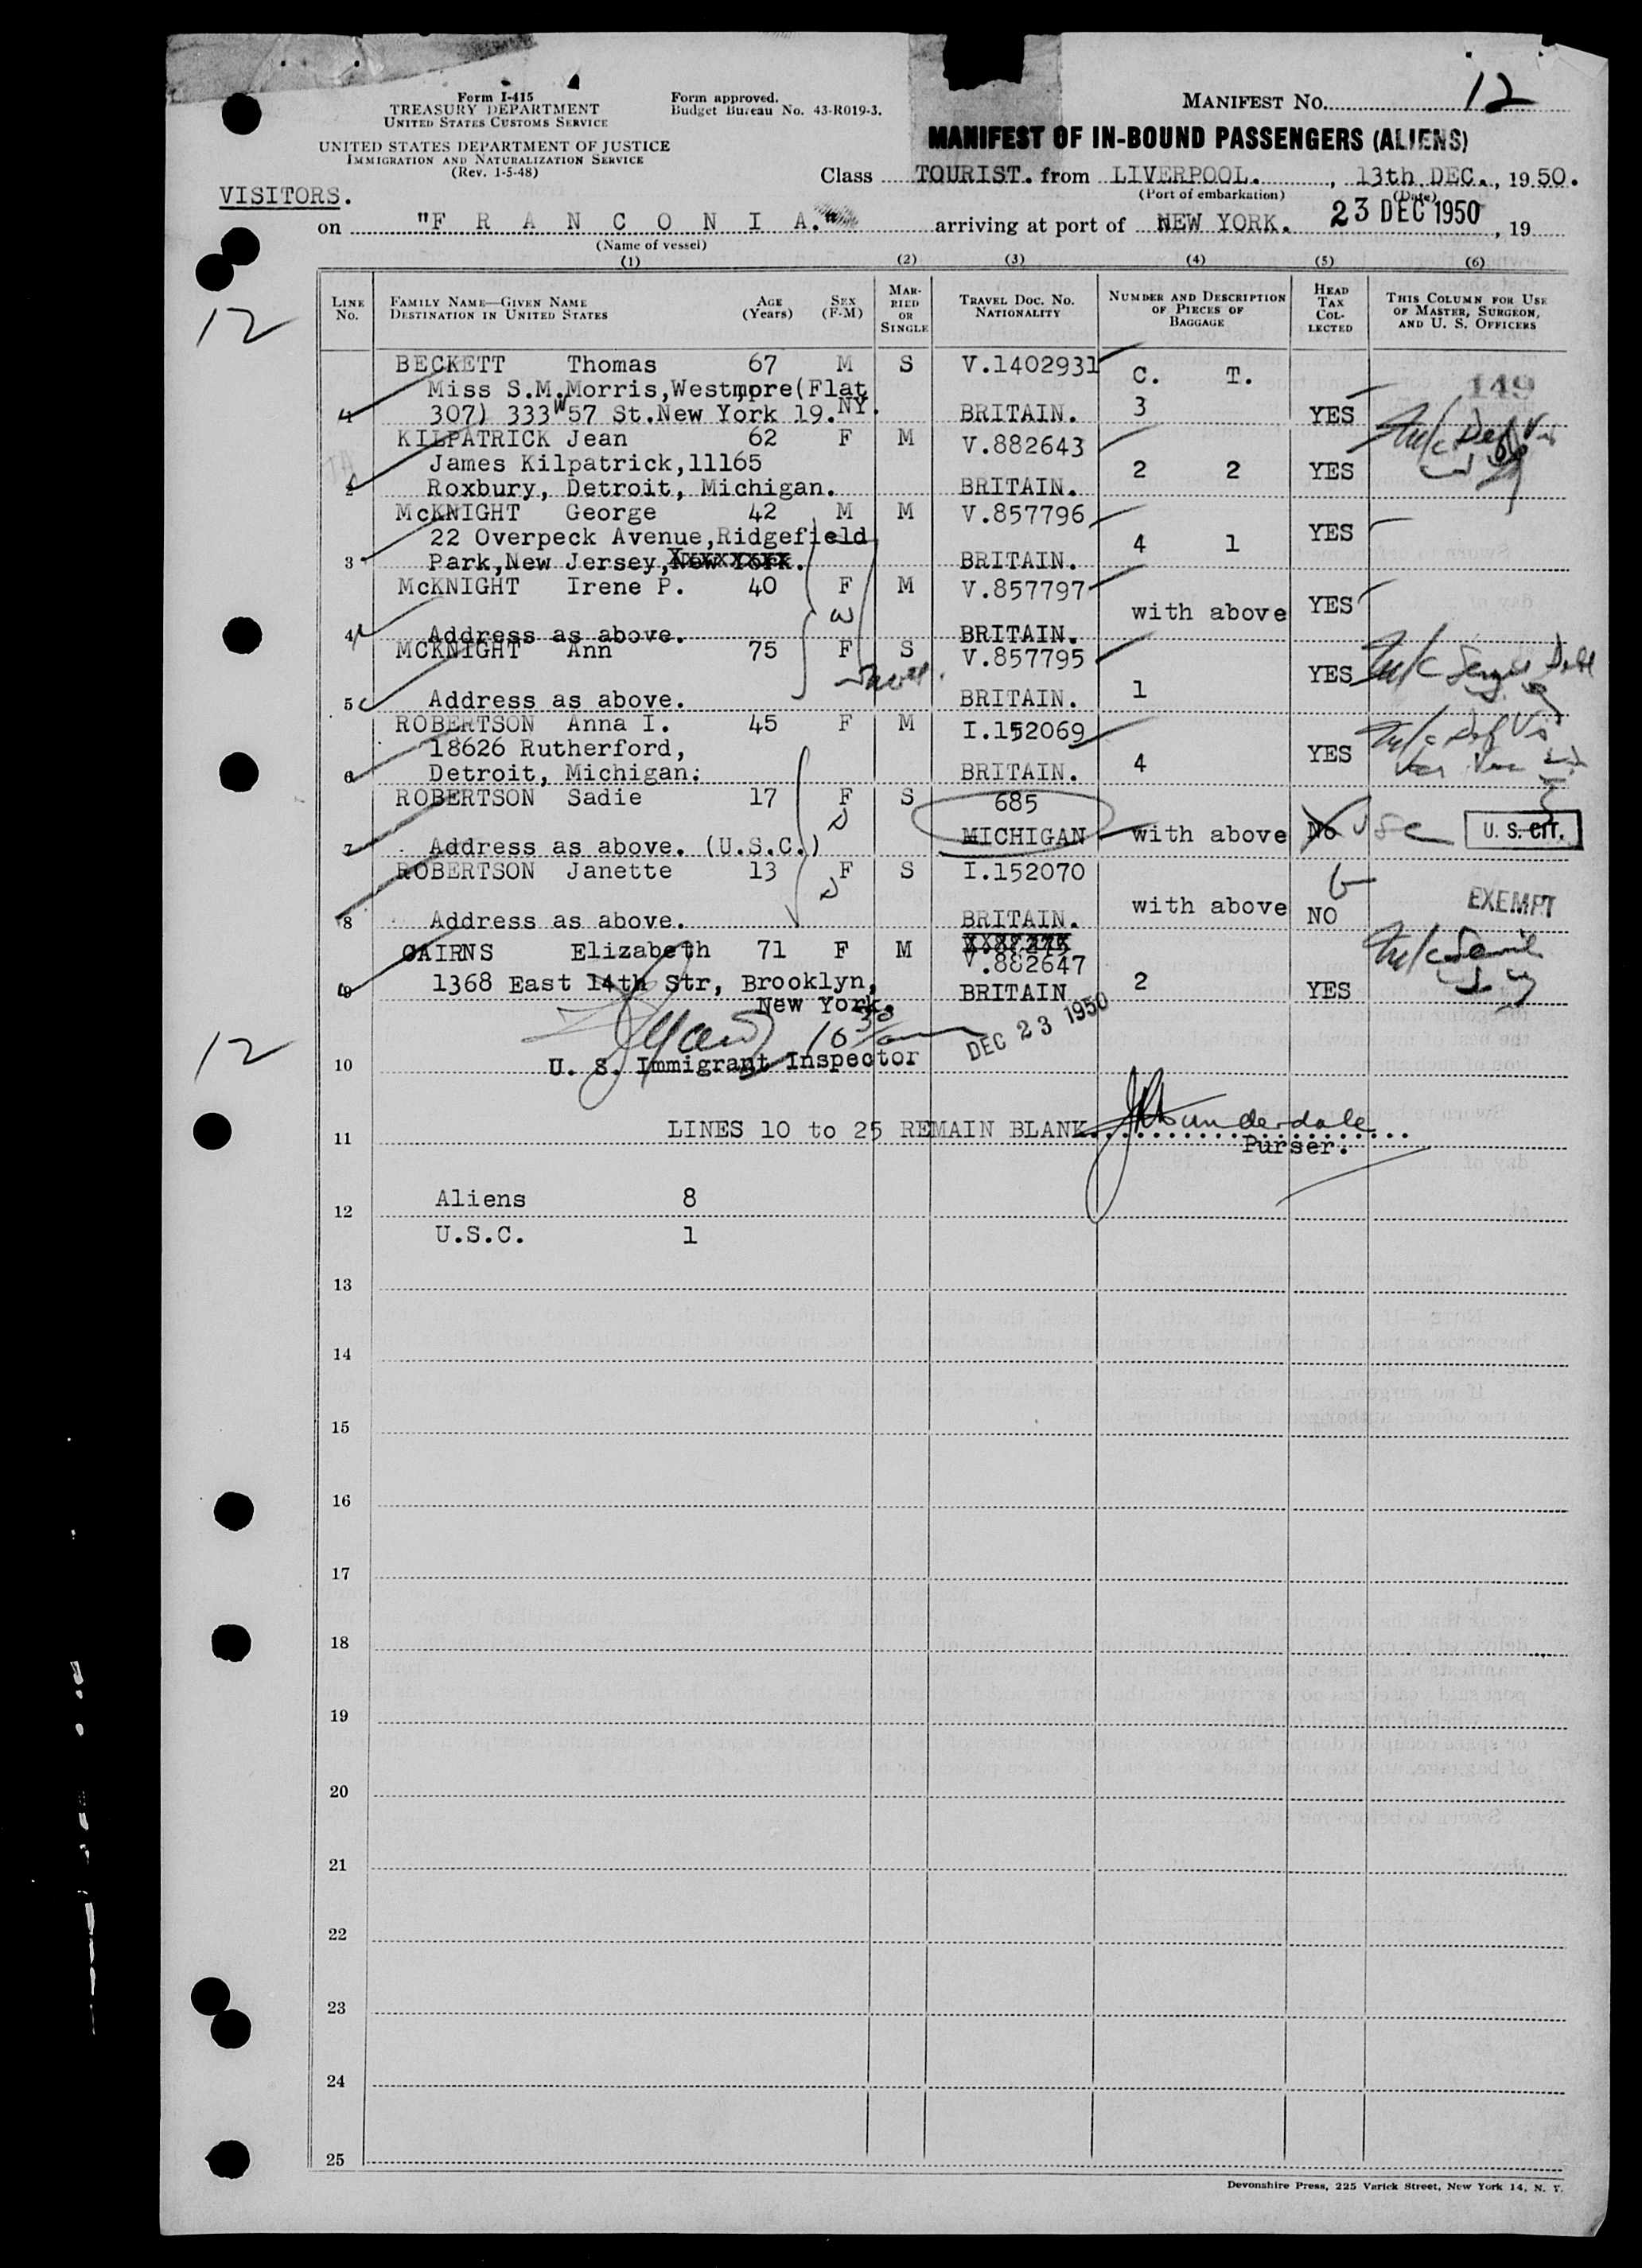 Form I-415
TREASURY DEPARTMENT
UNITED STATES CUSTOMS SERVICE
Form approved.
Budget Bureau No. 43-R019-3.
MANIFEST NO. 12
UNITED STATES DEPARTMENT OF JUSTICE
IMMIGRATION AND NATURALIZATION SERVICE
(Rev. 1-5-48)
MANIFEST OF IN-BOUND PASSENGERS (ALIENS)
Class TOURIST. from LIVERPOOL. , 13th DEC. , 1950.
(Port of embarkation) (Date)
VISITORS.
on "F R A N C O N I A." arriving at port of NEW YORK. 23 DEC 1950 , 19
(Name of vessel)
(1) (2) (3) (4) (5) (6)
LINE No. FAMILY NAME—GIVEN NAME DESTINATION IN UNITED STATES AGE (Years) SEX (F-M) MARRIED OR SINGLE TRAVEL DOC. NO. NATIONALITY NUMBER AND DESCRIPTION OF PIECES OF BAGGAGE HEAD TAX COLLECTED THIS COLUMN FOR USE OF MASTER, SURGEON, AND U. S. OFFICERS
12
BECKETT Thomas 67 M S V.1402931 C. T. 149
Miss S.M.Morris,Westmore(Flat
1 307) 333 W 57 St.New York 19.NY. BRITAIN. 3 YES
KILPATRICK Jean 62 F M V.882643
James Kilpatrick,11165
2 Roxbury, Detroit, Michigan. BRITAIN. 2 2 YES
McKNIGHT George 42 M M V.857796
22 Overpeck Avenue,Ridgefield
3 Park,New Jersey,New York. BRITAIN. 4 1 YES
McKNIGHT Irene P. 40 F M V.857797
4 Address as above. BRITAIN. with above YES
McKNIGHT Ann 75 F S V.857795
5 Address as above. BRITAIN. 1 YES
ROBERTSON Anna I. 45 F M I.152069
18626 Rutherford,
6 Detroit, Michigan. BRITAIN. 4 YES
ROBERTSON Sadie 17 F S 685
7 Address as above. (U.S.C.) MICHIGAN with above No USC U. S. CIT.
ROBERTSON Janette 13 F S I.152070
8 Address as above. BRITAIN. with above NO EXEMPT
CAIRNS Elizabeth 71 F M V.882647
9 1368 East 14th Str, Brooklyn, BRITAIN 2 YES
New York.
12
10 30 am DEC 23 1950
10 U. S. Immigrant Inspector
11 LINES 10 to 25 REMAIN BLANK. Sunderdale
Purser.
Aliens 8
12
U.S.C. 1
13
14
15
16
17
18
19
20
21
22
23
24
25
Devonshire Press, 225 Varick Street, New York 14, N. Y.